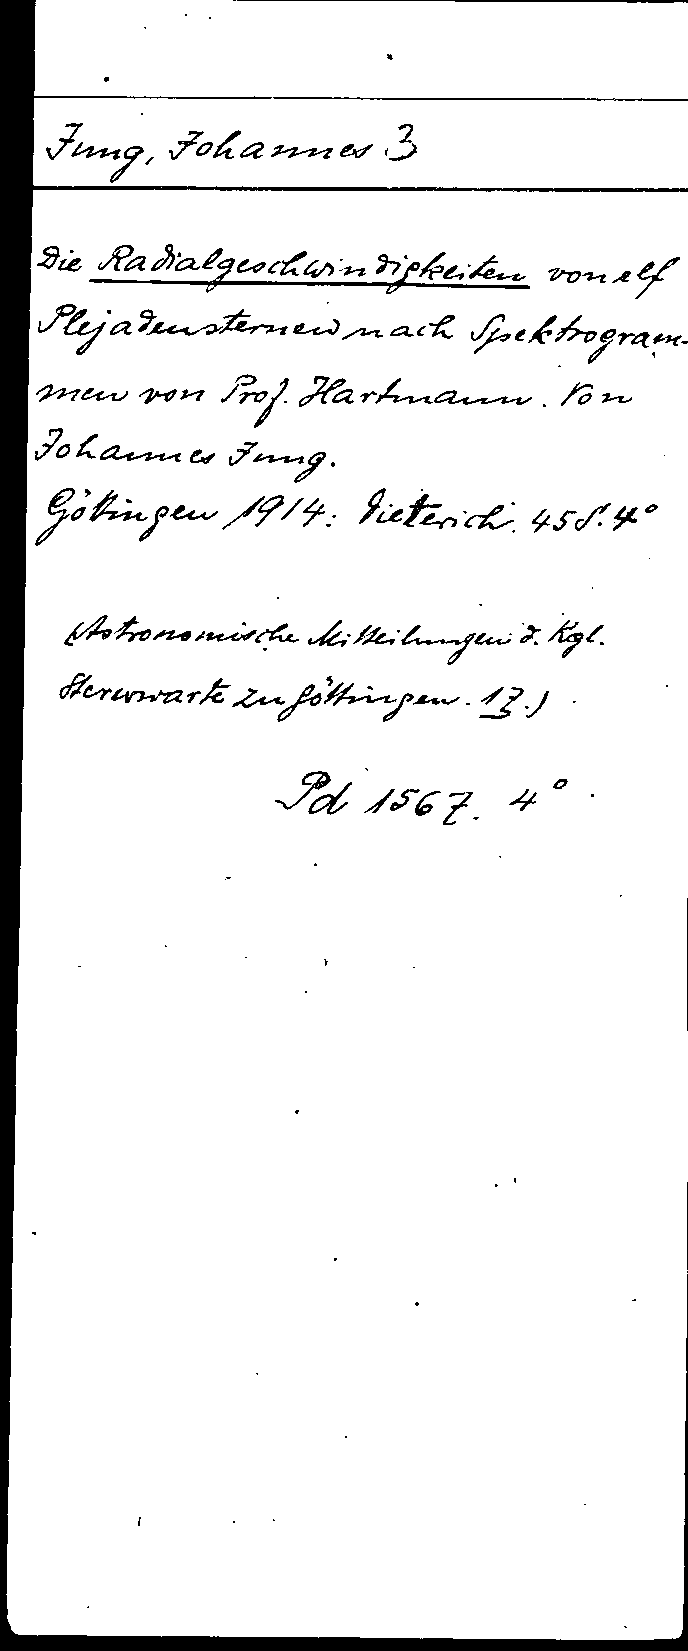 Jung, Johannes 3
Die Radialgeschwindigkeiten von elf
Plejadensternen nach Spektrogram-
men von Prof. Hartmann. Von
Johannes Jung.
Göttingen 1914: Dieterich. 45 S. 4°
(Astronomische Mitteilungen d. Kgl.
Sternwarte zu Göttingen. 17.)
Pd 1567. 4°